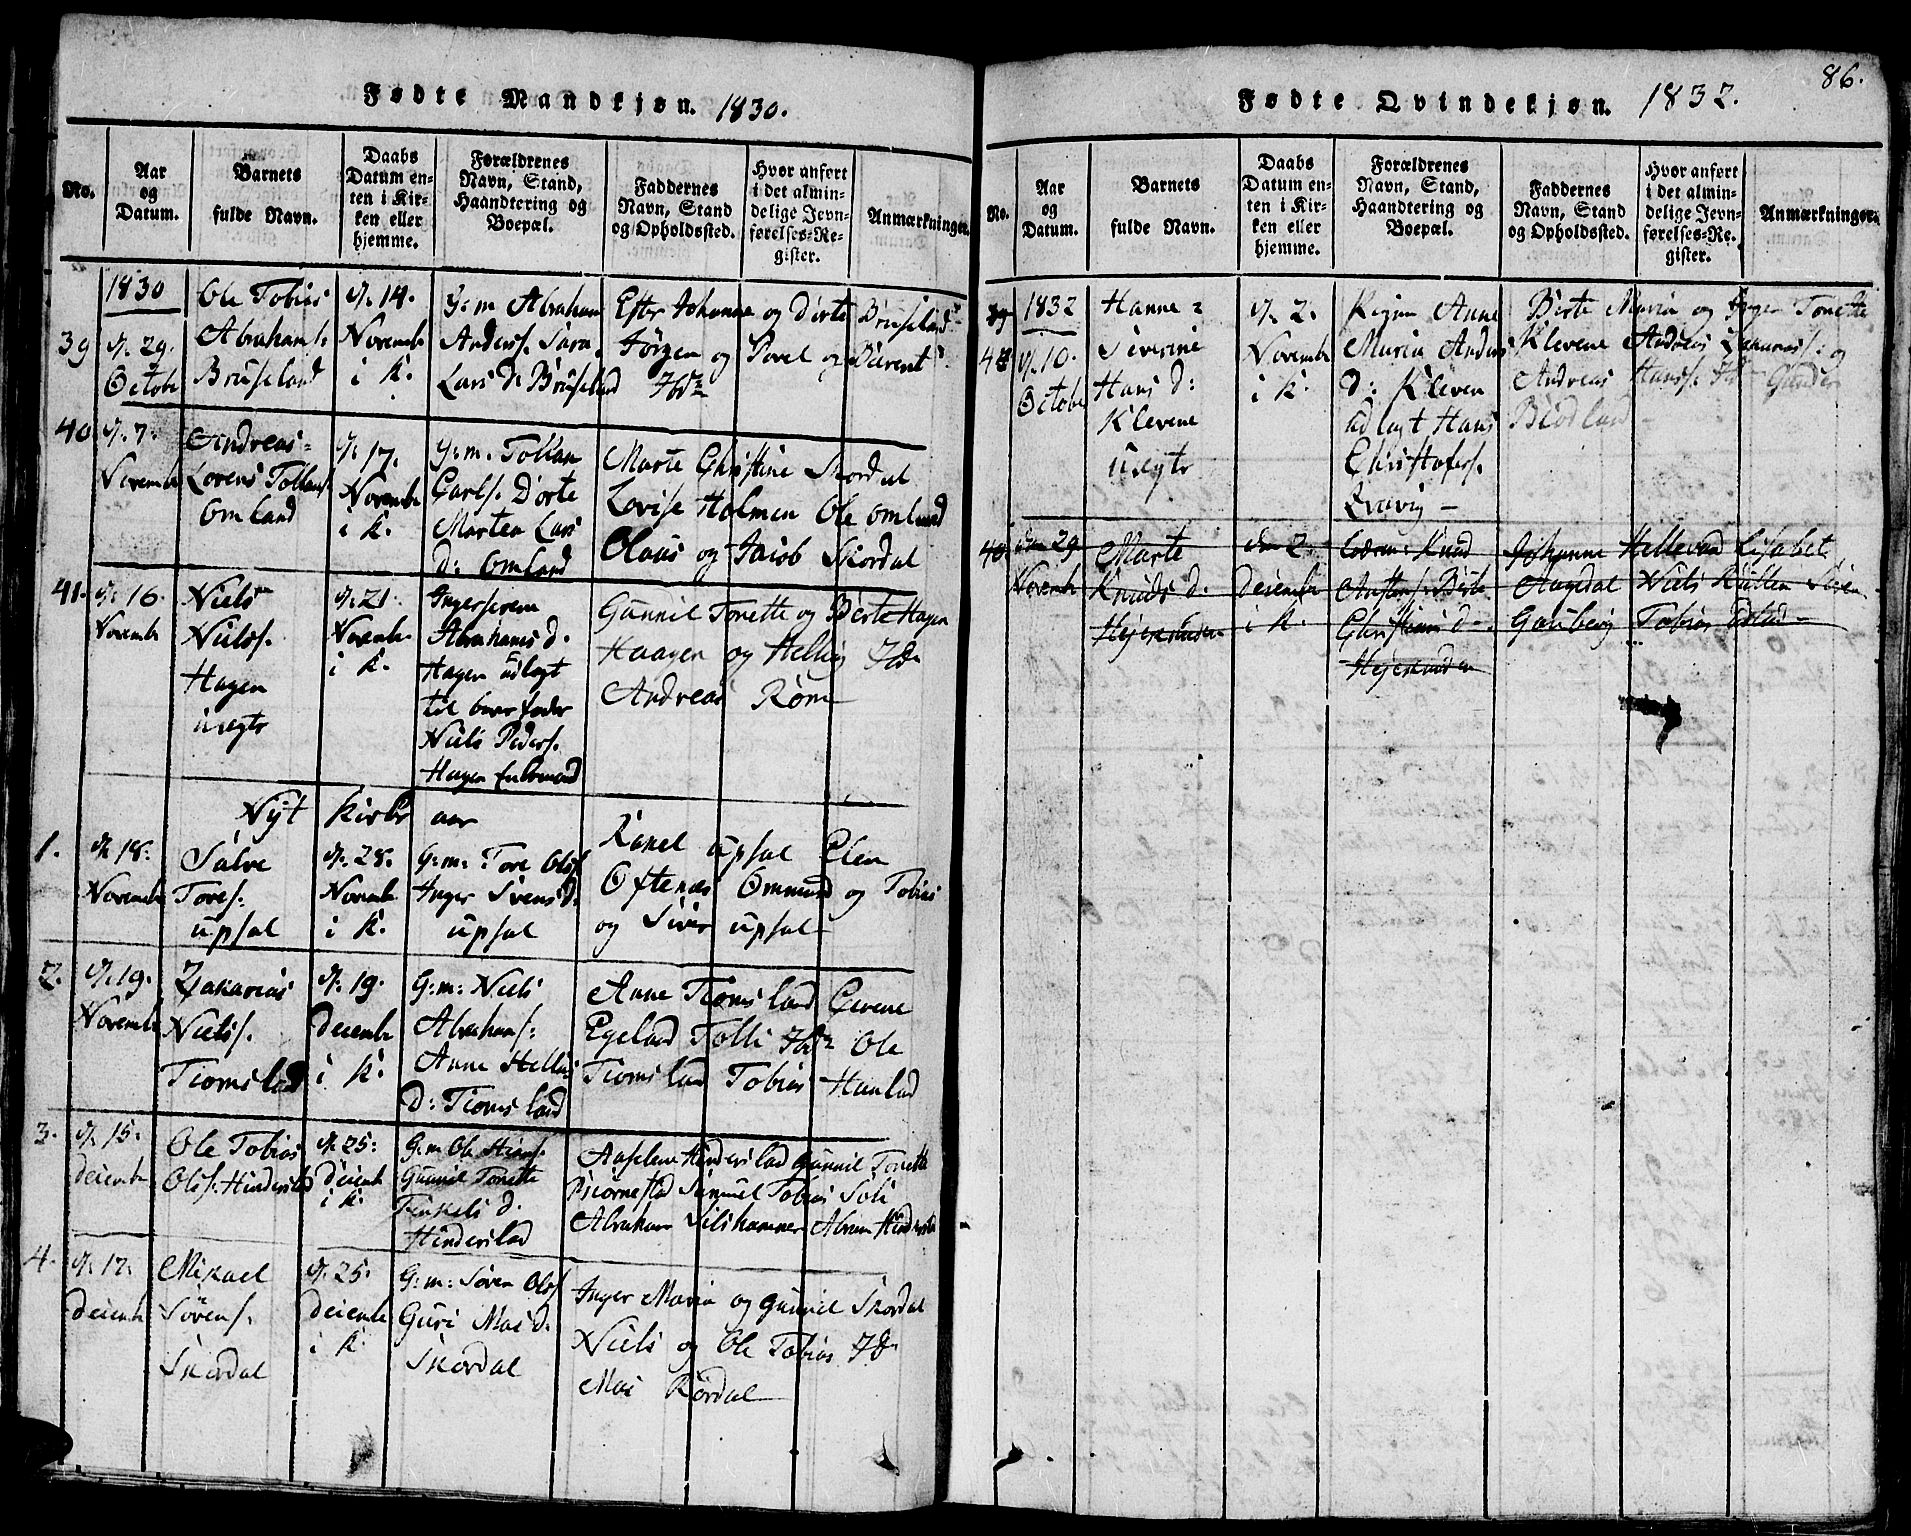 Fødte Mandkjøn. 1830.
No.
Aar
og
Datum.
Barnets
fulde Navn.
Daabs
Datum en-
ten i Kir-
ken eller
hjemme.
Forældrenes
Navn, Stand,
Haandtering og
Boepæl.
Faddernes
Navn, Stand
og Opholdssted.
Hvor anført
i det almin-
delige Jevn-
førelses-Re-
gister.
Anmærkninger.
39
1830
d. 29.
Octobe
Ole Tobias
Abrahams.
Bruseland
d. 14.
Novembe
i K.
G: m Abraham
Anders. Sara
Lars D: Bruseland
Efter Johanne og Dorte Bruseland
Jørgen og Povel og Barent
Ibd
40
d. 7.
Novembe
Andreas
Lorens Tollans.
Omland
d. 17.
Novembe
i K.
G: m. Tollan
Carls. Dorte
Marten Lars
D: Omland
Marte Christine Skordal
Lovise Holmen Ole Omland
Olaus og Jacob Skordal
41.
d. 16.
Novembe
Niels
Niels.
Hagen
uægte
d. 21.
Novembe
i K.
Ingerserene
Abrahams d.
Hagen udlagt
til barnefader
Niels Peders.
Hagen
Gunnil Tonette og Berte Hagen
Haagen og Hellig Ibd
Andreas Rom
Nyt Kirke aar
1.
d. 18.
Novembe
Salve
Tores.
upsal
d. 28.
Novembe
i K.
G: m: Tore Ols.
Inger Svens d.
upsal
Ranel upsal Elen
Oftenes Ommund og Tobias
og Siver upsal
2.
d. 19.
Novembe
Zakarias
Niels.
Tiomsland
d. 19.
decembe
i K.
G: m: Niels
Abrahams.
Anne Helles
D: Tiomsland
Anne Tiomsland Serene
Egeland Tolli Ibd Ole
Tiomsland Tobias Hanland
3.
d. 15.
decembe
Ole Tobias
Ols. Hinderslad
d. 25.
decemb
i K.
G: m Ole
Gunnil Tonette
Tenkels d.
Hinderslad
Aaselene Hinderslad Gunnil Tonette
Biørnestad Samuel Tobias Soli
Abraham Silshammer Abram Hinderslad
4.
d. 17.
decemb
Mikael
Sørens.
Skordal
d. 25.
decembe
i K.
G: m: Søren Ols.
Guri Mas d.
Skordal
Inger Maria og Gunnil Skordal
Niels og Ole Tobias Ibd
Mas Rørdal
86.
Fødte Qvindekjøn. 1832.
No.
Aar
og
Datum.
Barnets
fulde Navn.
Daabs
Datum en-
ten i Kir-
ken eller
hjemme.
Forældrenes
Navn, Stand,
Haandtering og
Boepæl.
Faddernes
Navn, Stand
og Opholdssted.
Hvor anført
i det almin-
delige Jevn-
førelses-Re-
gister.
Anmærkninger.
39
1832
d. 10.
Octobe
Hanne
Siverine
Hans d:
Klevene
uægte
d. 2.
Novembe
i K.
Pigen Anne
Maria Anders
d: Kleven
udlagt Hans
Christofers.
Berte Maria og Inger Tonette
Klevene Andreas Zakarias. og
Andreas Hans. Ibd Gunder
40
den 29
Novemb
Marte
Knuds d:
den 2.
decembe
i K.
Knud
Berte
Christians d.
Johanne Hellevand Lisabet
Aagedal Niels
Gauberg Tobias